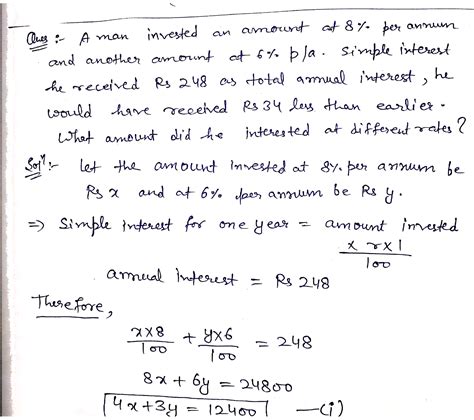 Ques :- A man invested an amount at 8% per annum
and another amount at 6% p/a. Simple interest
he received Rs 248 as total annual interest, he
would have received Rs 34 less than earlier.
What amount did he interested at different rates?
Solⁿ:- let the amount invested at 8% per annum be
Rs x and at 6% per annum be Rs y.
=> Simple interest for one year = amount invested
x r x 1
100
annual interest = Rs 248
Therefore,
x x 8 / 100 + y x 6 / 100 = 248
8x + 6y = 24800
4x + 3y = 12400 —(i)